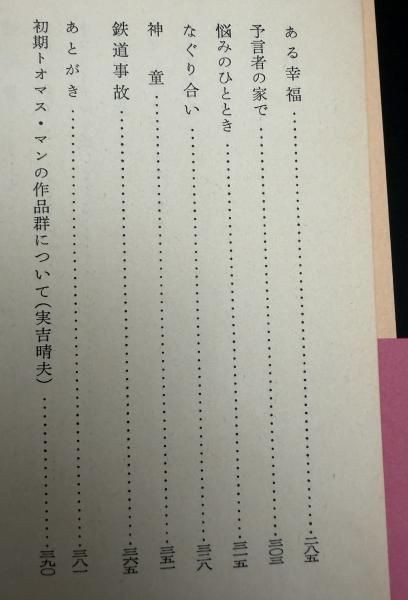 ある幸福……………………二八五
予言者の家で……………………三〇三
悩みのひととき……………………三一五
なぐり合い……………………三二八
神童……………………三五一
鉄道事故……………………三六五
あとがき……………………三八一
初期トオマス・マンの作品群について(実吉晴夫)……………………三九〇